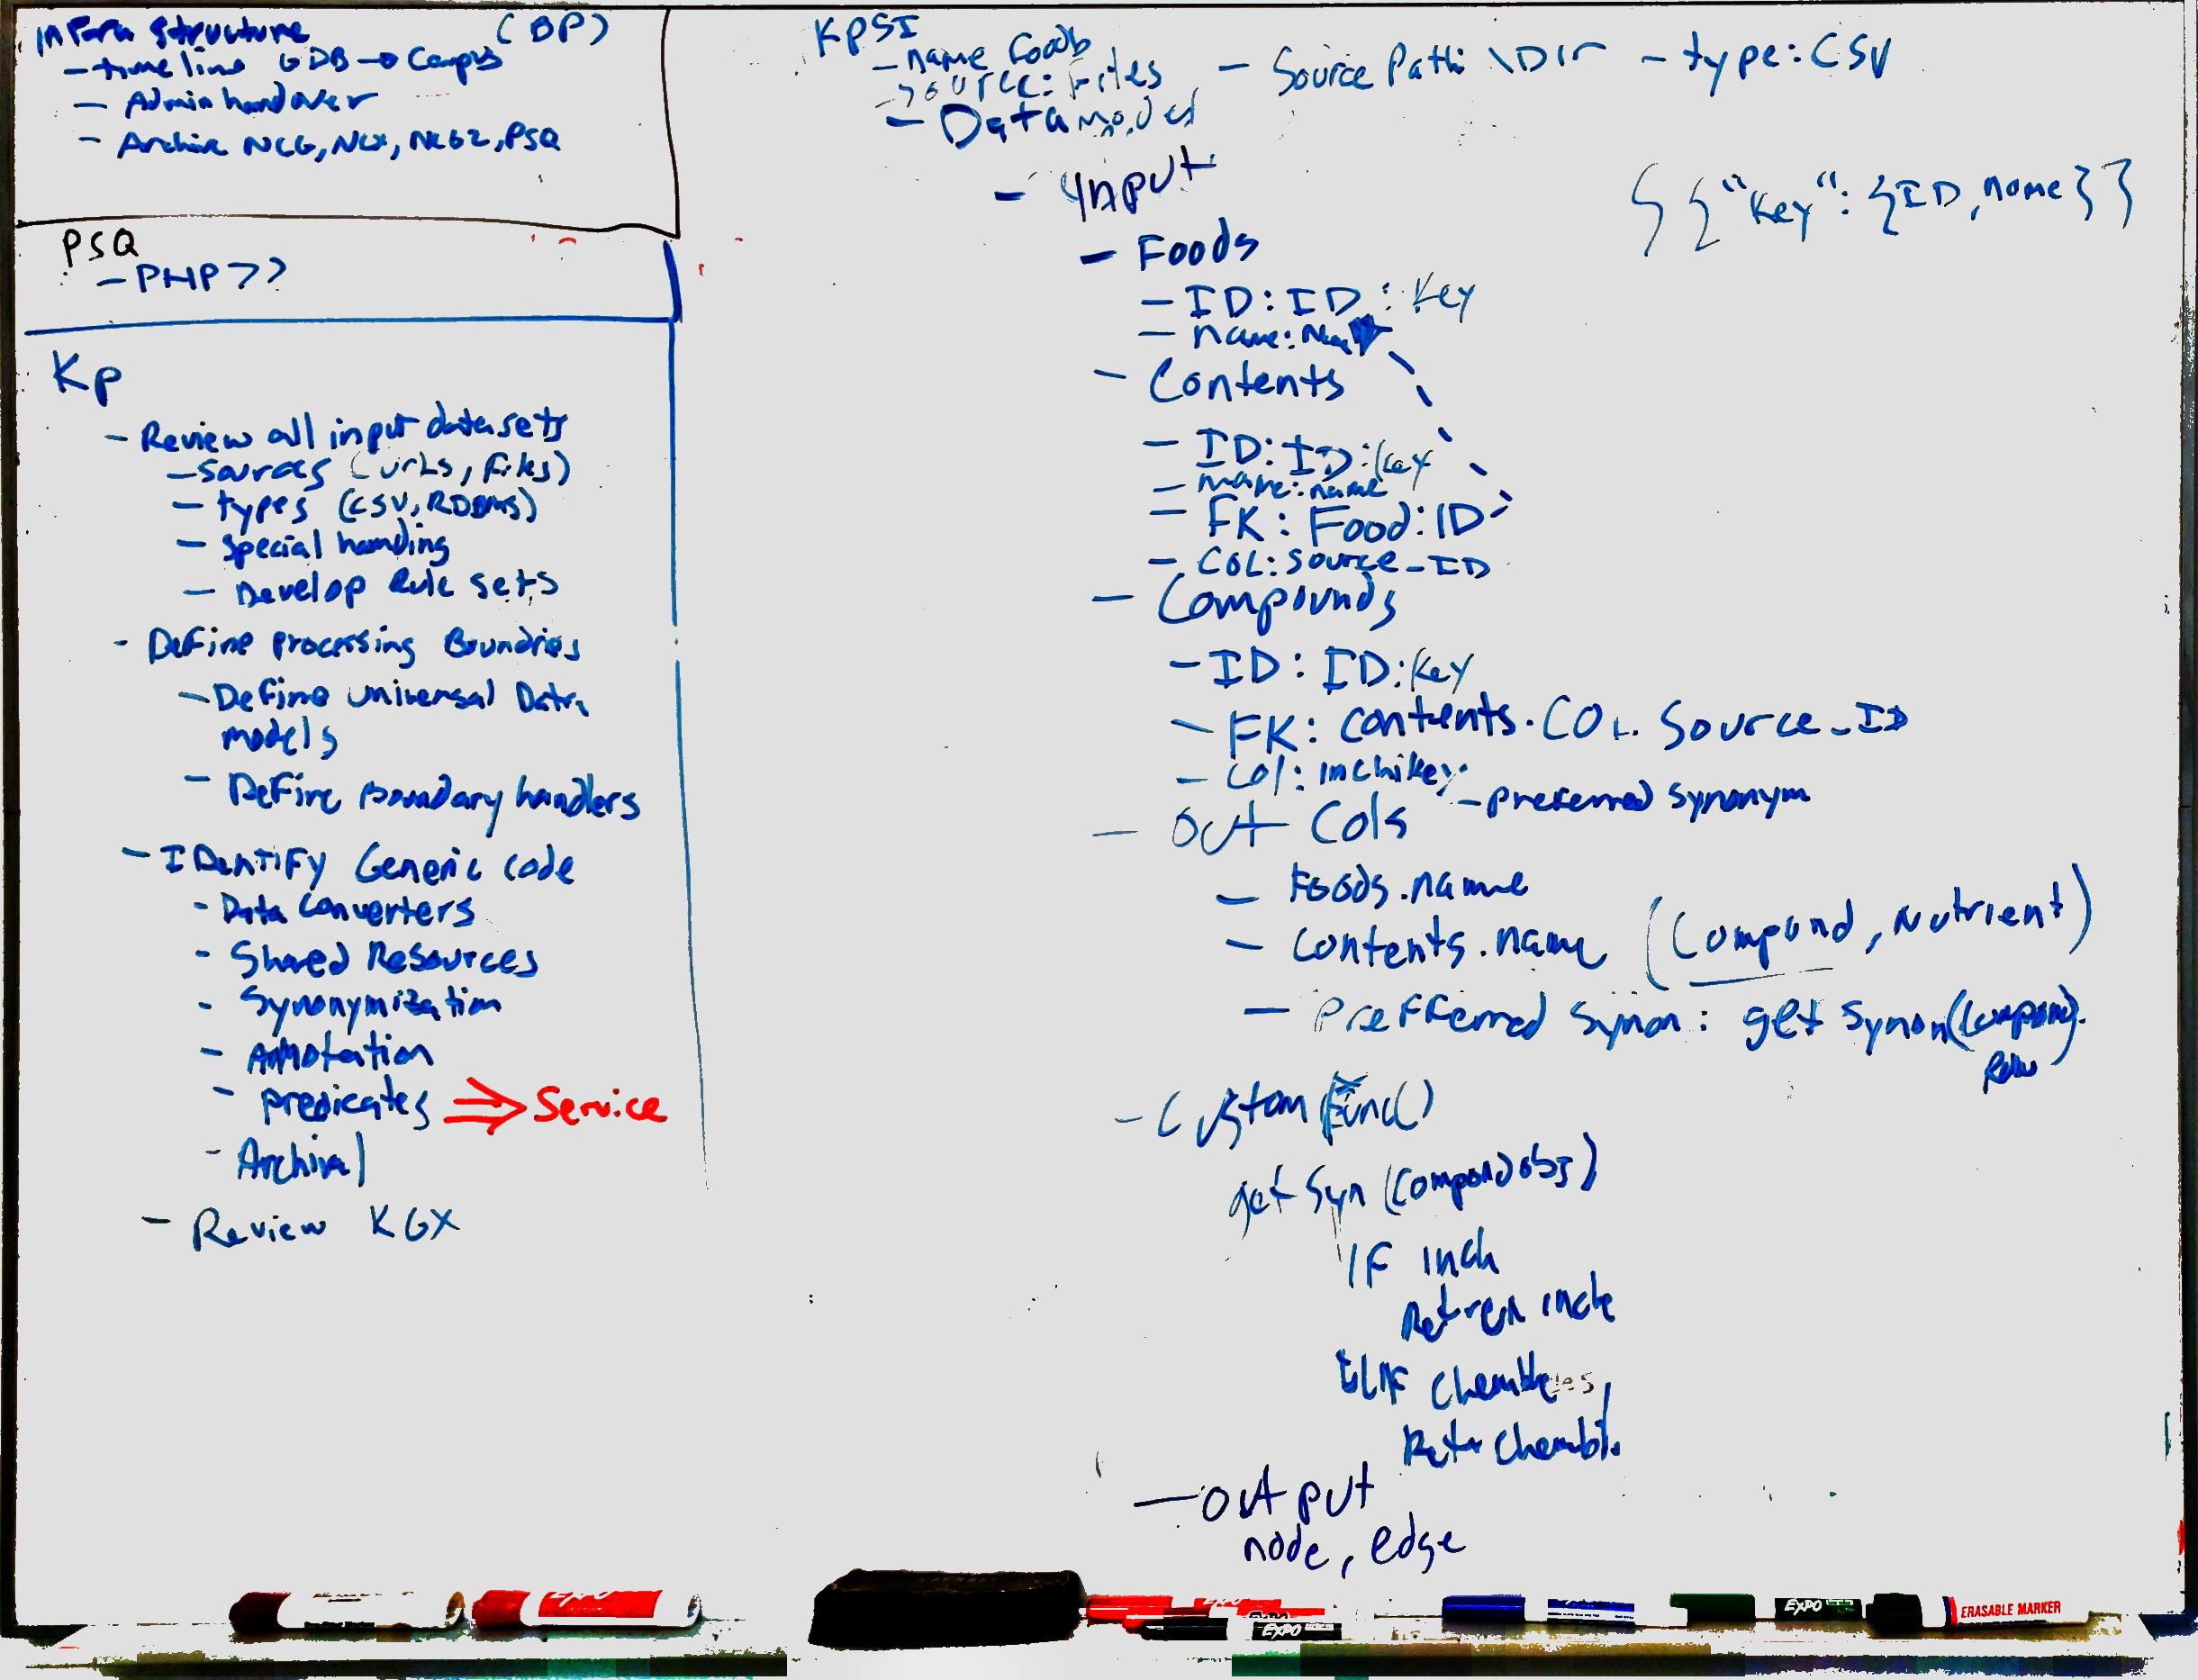 Infra structure (BP)
- timeline GDB → Campus
- Admin handover
- Archive NCG, NCX, NCG2, PSQ
PSQ
- PHP??
Kp
- Review all input datasets
- sources (urls, files)
- types (CSV, RDBMS)
- special handling
- Develop Rule sets
- Define processing Boundries
- Define universal Data
models
- Define Boundary handlers
- IDentify Generic code
- Data Converters
- Shared Resources
- Synonymization
- Annotation
- predicates ⇒ Service
- Archival
- Review KGX
KPSI
- name Foodb
- source: Files - Source Path: \Dir - type: CSV
- Data model
- Input
{ { "Key": {ID, name} }
- Foods
- ID: ID: Key
- name:
- Contents
- ID: ID: Key
- name: name
- FK: Food: ID
- COL: source_ID
- Compounds
- ID: ID: Key
- FK: contents. COL. Source_ID
- Col: inchikey
- preferred synonym
- Out Cols
- Foods.name
- contents.name (Compound, Nutrient)
- Prefferred Synon: get Synon(Compound.
Row
- Custom Func()
get Syn (Compound obj)
IF inch
Return inch
ELIF Chembl
Retr Chembl.
- output
node, edge
EXPO
EXPO
EXPO
EXPO
ERASABLE MARKER